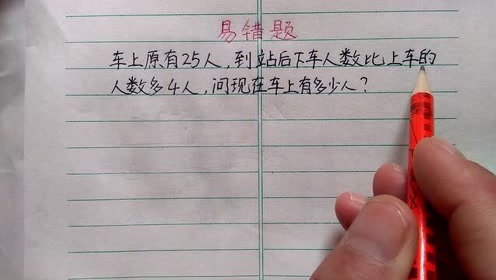 易错题
车上原有25人，到站后下车人数比上车的
人数多4人，问现在车上有多少人？